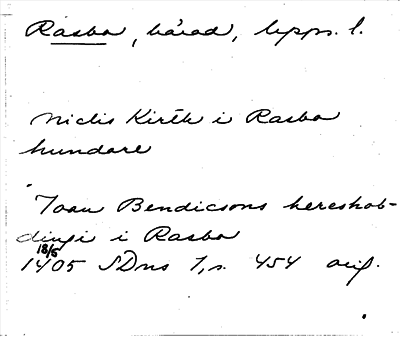 Rasbo, härad, Upps. l.
niclis Kirth i Rasbo
hundare
Joan Bendicsons hereshöb-
dingi i Rasbo
18/5
1405 SDns 1, s. 454 orig.